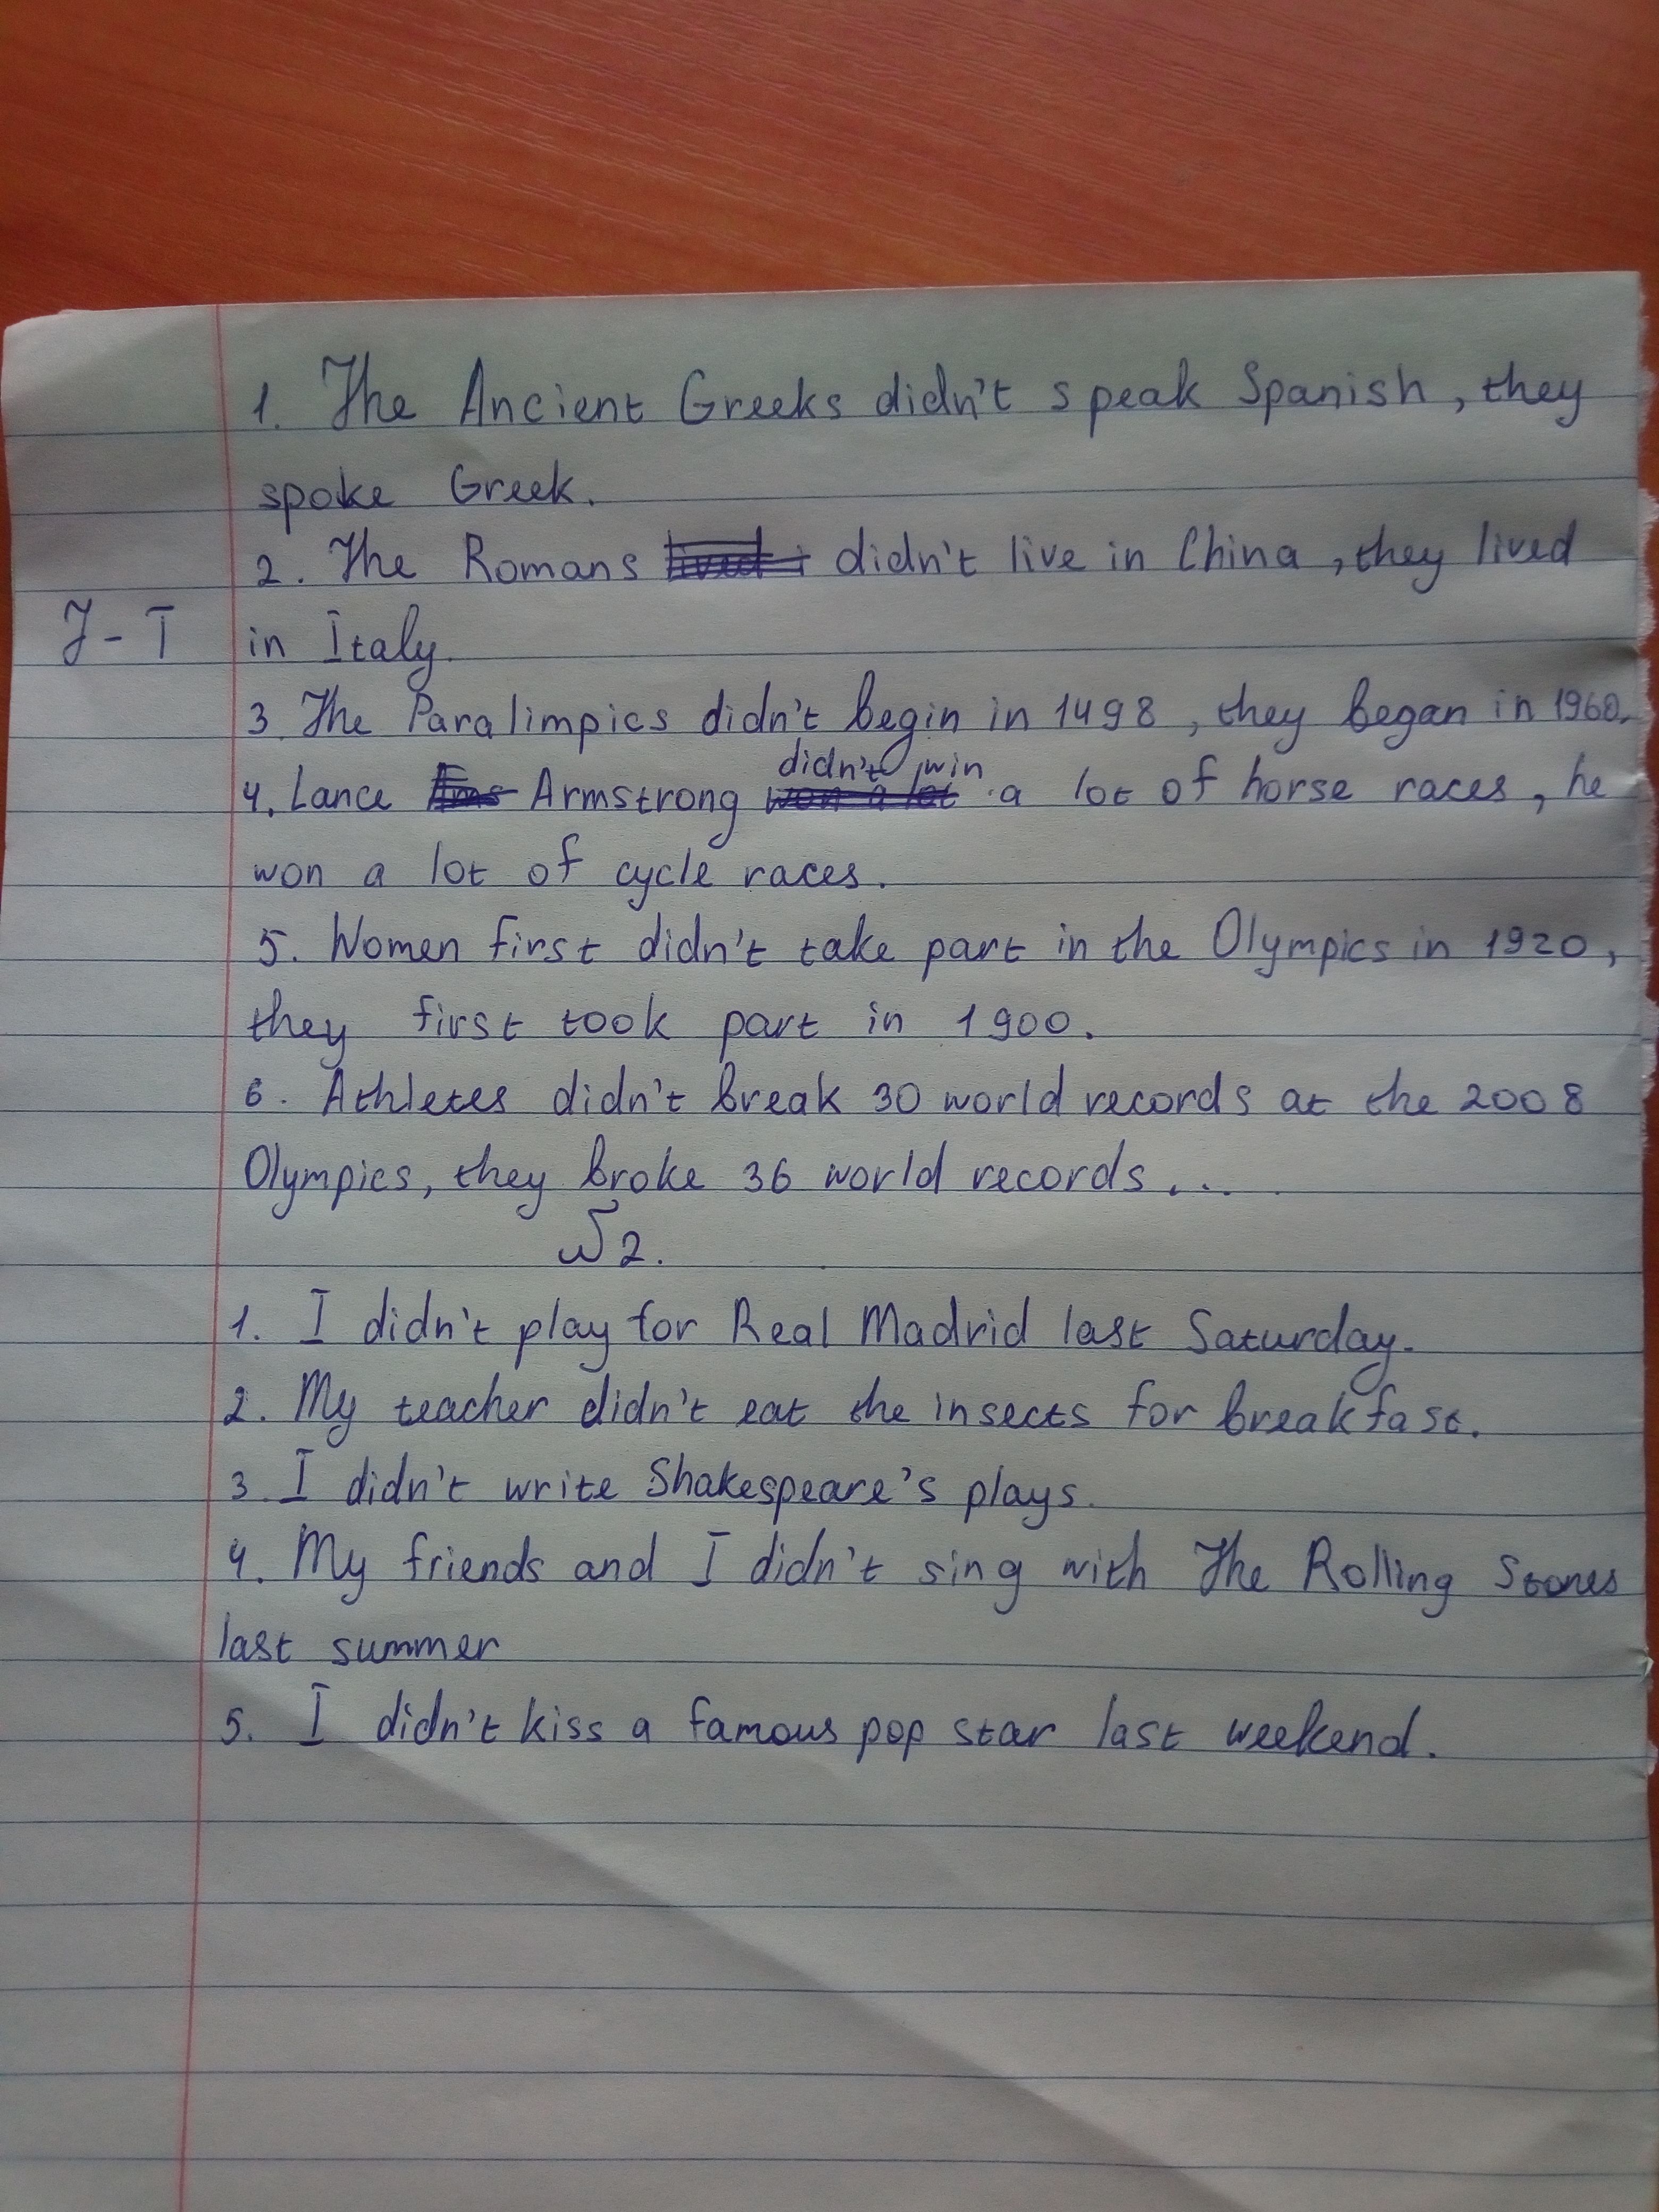 1. The Ancient Greeks didn't speak Spanish, they
spoke Greek.
2. The Romans didn't live in China, they lived
J-T in Italy.
3. The Paralimpics didn't begin in 1498, they began in 1960.
didn't win
4. Lance Armstrong a lot of horse races, he
won a lot of cycle races.
5. Women first didn't take part in the Olympics in 1920,
they first took part in 1900.
6. Athletes didn't break 30 world records at the 2008
Olympics, they broke 36 world records...
№2.
1. I didn't play for Real Madrid last Saturday.
2. My teacher didn't eat the insects for breakfast.
3. I didn't write Shakespeare's plays.
4. My friends and I didn't sing with The Rolling Stones
last summer
5. I didn't kiss a famous pop star last weekend.